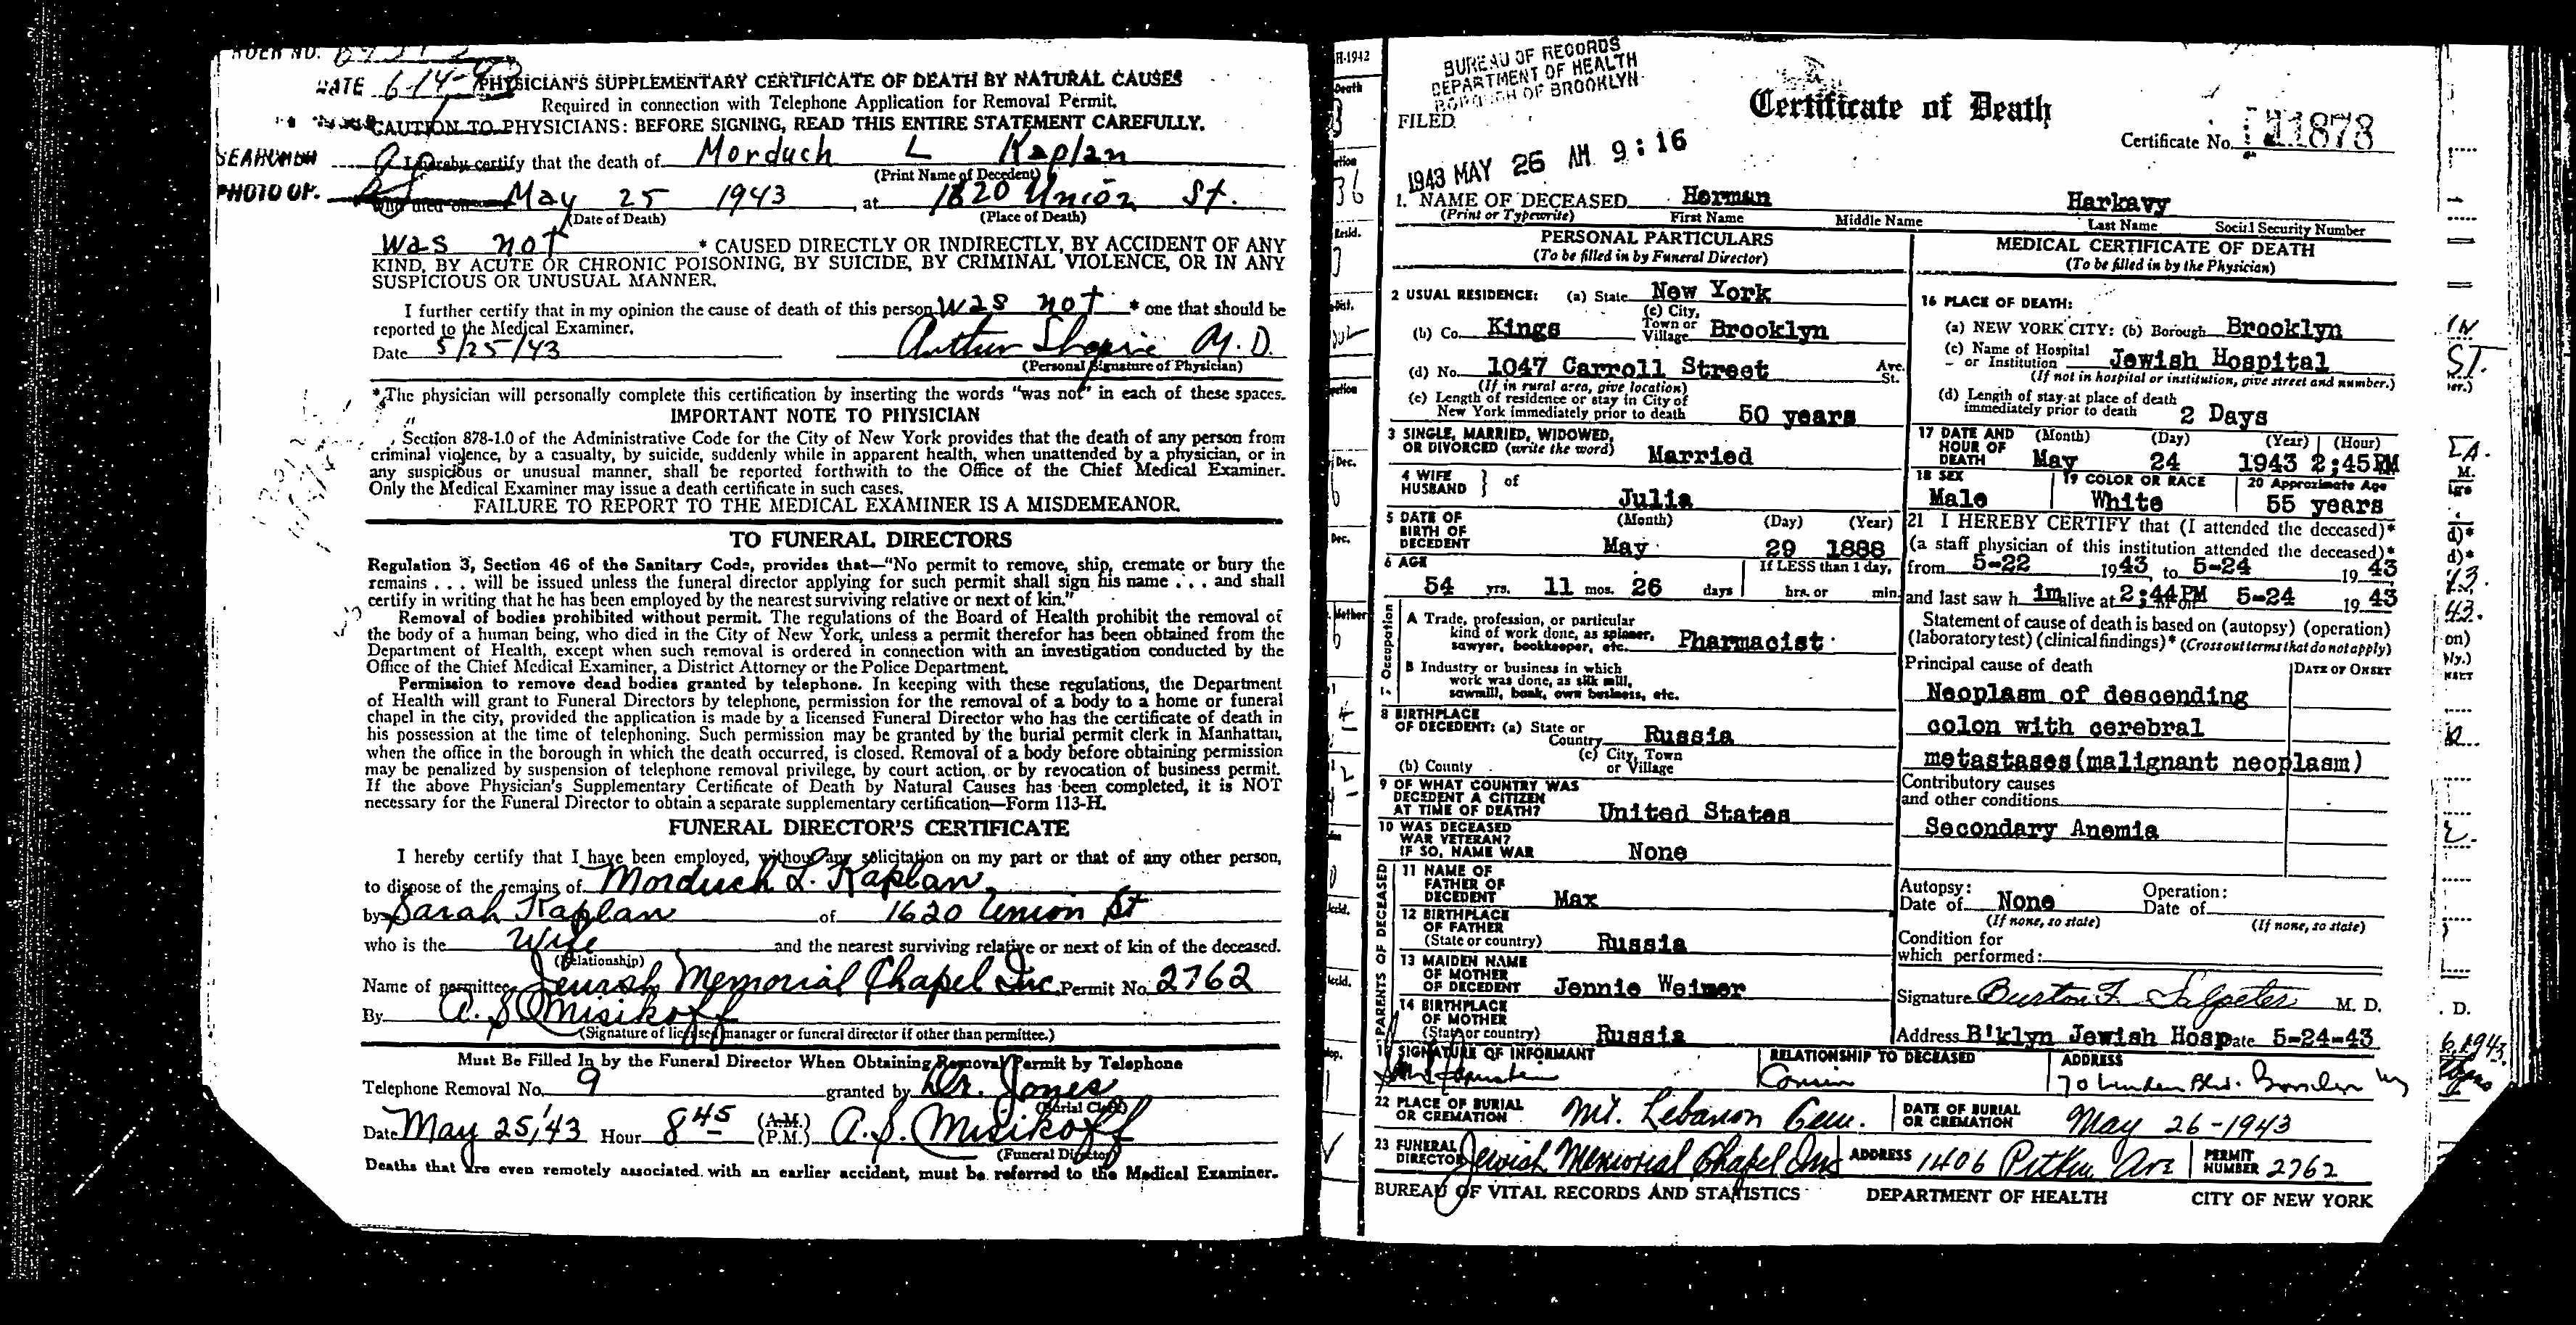 ORDER NO.
DATE 6-14-43
PHYSICIAN'S SUPPLEMENTARY CERTIFICATE OF DEATH BY NATURAL CAUSES
Required in connection with Telephone Application for Removal Permit.
CAUTION TO PHYSICIANS: BEFORE SIGNING, READ THIS ENTIRE STATEMENT CAREFULLY.
SEARCHED
I hereby certify that the death of Morduch L Kaplan
(Print Name of Decedent)
PHOTO OP.
who died on May 25 1943, at 1620 Union St.
(Date of Death) (Place of Death)
was not * CAUSED DIRECTLY OR INDIRECTLY, BY ACCIDENT OF ANY
KIND, BY ACUTE OR CHRONIC POISONING, BY SUICIDE, BY CRIMINAL VIOLENCE, OR IN ANY
SUSPICIOUS OR UNUSUAL MANNER.
I further certify that in my opinion the cause of death of this person was not * one that should be
reported to the Medical Examiner.
Date 5/25/43 Arthur Shapiro M.D.
(Personal Signature of Physician)
*The physician will personally complete this certification by inserting the words "was not" in each of these spaces.
IMPORTANT NOTE TO PHYSICIAN
Section 878-1.0 of the Administrative Code for the City of New York provides that the death of any person from
criminal violence, by a casualty, by suicide, suddenly while in apparent health, when unattended by a physician, or in
any suspicious or unusual manner, shall be reported forthwith to the Office of the Chief Medical Examiner.
Only the Medical Examiner may issue a death certificate in such cases.
FAILURE TO REPORT TO THE MEDICAL EXAMINER IS A MISDEMEANOR.
TO FUNERAL DIRECTORS
Regulation 3, Section 46 of the Sanitary Code, provides that—"No permit to remove, ship, cremate or bury the
remains . . . will be issued unless the funeral director applying for such permit shall sign his name . . . and shall
certify in writing that he has been employed by the nearest surviving relative or next of kin."
Removal of bodies prohibited without permit. The regulations of the Board of Health prohibit the removal of
the body of a human being, who died in the City of New York, unless a permit therefor has been obtained from the
Department of Health, except when such removal is ordered in connection with an investigation conducted by the
Office of the Chief Medical Examiner, a District Attorney or the Police Department.
Permission to remove dead bodies granted by telephone. In keeping with these regulations, the Department
of Health will grant to Funeral Directors by telephone, permission for the removal of a body to a home or funeral
chapel in the city, provided the application is made by a licensed Funeral Director who has the certificate of death in
his possession at the time of telephoning. Such permission may be granted by the burial permit clerk in Manhattan,
when the office in the borough in which the death occurred, is closed. Removal of a body before obtaining permission
may be penalized by suspension of telephone removal privilege, by court action, or by revocation of business permit.
If the above Physician's Supplementary Certificate of Death by Natural Causes has been completed, it is NOT
necessary for the Funeral Director to obtain a separate supplementary certification—Form 113-H.
FUNERAL DIRECTOR'S CERTIFICATE
I hereby certify that I have been employed, without any solicitation on my part or that of any other person,
to dispose of the remains of Morduch L. Kaplan
by Sarah Kaplan of 1620 Union St
who is the Wife and the nearest surviving relative or next of kin of the deceased.
(Relationship)
Name of permittee Jewish Memorial Chapel Inc. Permit No. 2762
By A. S. Misikoff
(Signature of licensed manager or funeral director if other than permittee.)
Must Be Filled In by the Funeral Director When Obtaining Removal Permit by Telephone
Telephone Removal No. 9 granted by Dr. Jones
(Burial Clerk)
Date May 25, '43 Hour 8 45 (A.M.) (P.M.) A. S. Misikoff
(Funeral Director)
Deaths that are even remotely associated with an earlier accident, must be referred to the Medical Examiner.
BUREAU OF RECORDS
DEPARTMENT OF HEALTH
BOROUGH OF BROOKLYN
FILED
1943 MAY 26 AM 9:16
Certificate of Death
Certificate No. 11873
1. NAME OF DECEASED Herman Harkavy
(Print or Typewrite) First Name Middle Name Last Name Social Security Number
PERSONAL PARTICULARS
(To be filled in by Funeral Director)
2 USUAL RESIDENCE: (a) State New York
(b) Co. Kings (c) City, Town or Village Brooklyn
(d) No. 1047 Carroll Street Ave. St.
(If in rural area, give location)
(e) Length of residence or stay in City of
New York immediately prior to death 50 years
3 SINGLE, MARRIED, WIDOWED,
OR DIVORCED (write the word) Married
4 WIFE HUSBAND } of Julia
5 DATE OF BIRTH OF DECEDENT (Month) (Day) (Year)
May 29 1888
6 AGE If LESS than 1 day,
54 yrs. 11 mos. 26 days hrs. or min.
7 Occupation
A Trade, profession, or particular
kind of work done, as spinner,
sawyer, bookkeeper, etc. Pharmacist
B Industry or business in which
work was done, as silk mill,
sawmill, bank, own business, etc.
8 BIRTHPLACE
OF DECEDENT: (a) State or Country Russia
(b) County (c) City, Town or Village
9 OF WHAT COUNTRY WAS
DECEDENT A CITIZEN
AT TIME OF DEATH? United States
10 WAS DECEASED
WAR VETERAN?
IF SO, NAME WAR None
PARENTS OF DECEASED
11 NAME OF
FATHER OF
DECEDENT Max
12 BIRTHPLACE
OF FATHER
(State or country) Russia
13 MAIDEN NAME
OF MOTHER
OF DECEDENT Jennie Weimer
14 BIRTHPLACE
OF MOTHER
(State or country) Russia
MEDICAL CERTIFICATE OF DEATH
(To be filled in by the Physician)
16 PLACE OF DEATH:
(a) NEW YORK CITY: (b) Borough Brooklyn
(c) Name of Hospital
or Institution Jewish Hospital
(If not in hospital or institution, give street and number.)
(d) Length of stay at place of death
immediately prior to death 2 Days
17 DATE AND HOUR OF DEATH (Month) (Day) (Year) (Hour)
May 24 1943 2:45PM
18 SEX 19 COLOR OR RACE 20 Approximate Age
Male White 55 years
21 I HEREBY CERTIFY that (I attended the deceased)*
(a staff physician of this institution attended the deceased)*
from 5-22 1943, to 5-24 1943
and last saw h im alive at 2:44 PM on 5-24 1943
Statement of cause of death is based on (autopsy) (operation)
(laboratory test) (clinical findings)* (Cross out terms that do not apply)
Principal cause of death DATE OF ONSET
Neoplasm of descending
colon with cerebral
metastases(malignant neoplasm)
Contributory causes
and other conditions
Secondary Anemia
Autopsy: Operation:
Date of None Date of
(If none, so state) (If none, so state)
Condition for
which performed:
Signature Burton F. Salpeter M. D.
Address B'klyn Jewish Hosp Date 5-24-43
SIGNATURE OF INFORMANT RELATIONSHIP TO DECEASED ADDRESS
Cousin 70 Linden Blvd. Brooklyn NY
22 PLACE OF BURIAL
OR CREMATION Mt. Lebanon Cem. DATE OF BURIAL OR CREMATION May 26-1943
23 FUNERAL
DIRECTOR Jewish Memorial Chapel Inc ADDRESS 1406 Pitkin Ave PERMIT NUMBER 2762
BUREAU OF VITAL RECORDS AND STATISTICS DEPARTMENT OF HEALTH CITY OF NEW YORK